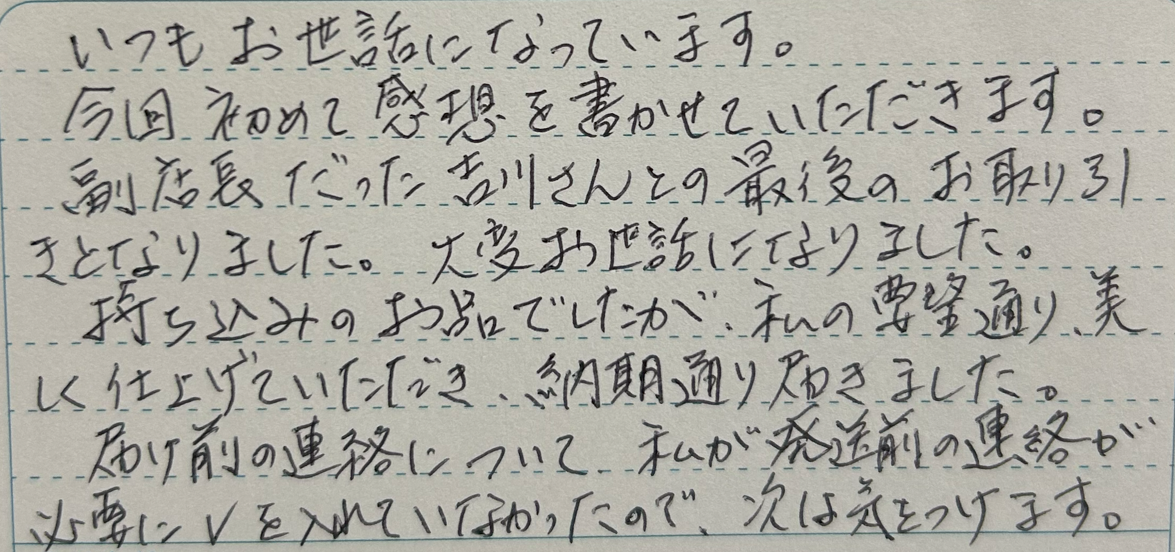 いつもお世話になっています。
今回初めて感想を書かせていただきます。
副店長だった吉川さんとの最後のお取り引
きとなりました。大変お世話になりました。
持ち込みのお品でしたが、私の要望通り、美
しく仕上げていただき、納期通り届きました。
届け前の連絡について、私が発送前の連絡が
必要にVを入れていなかったので、次は気をつけます。